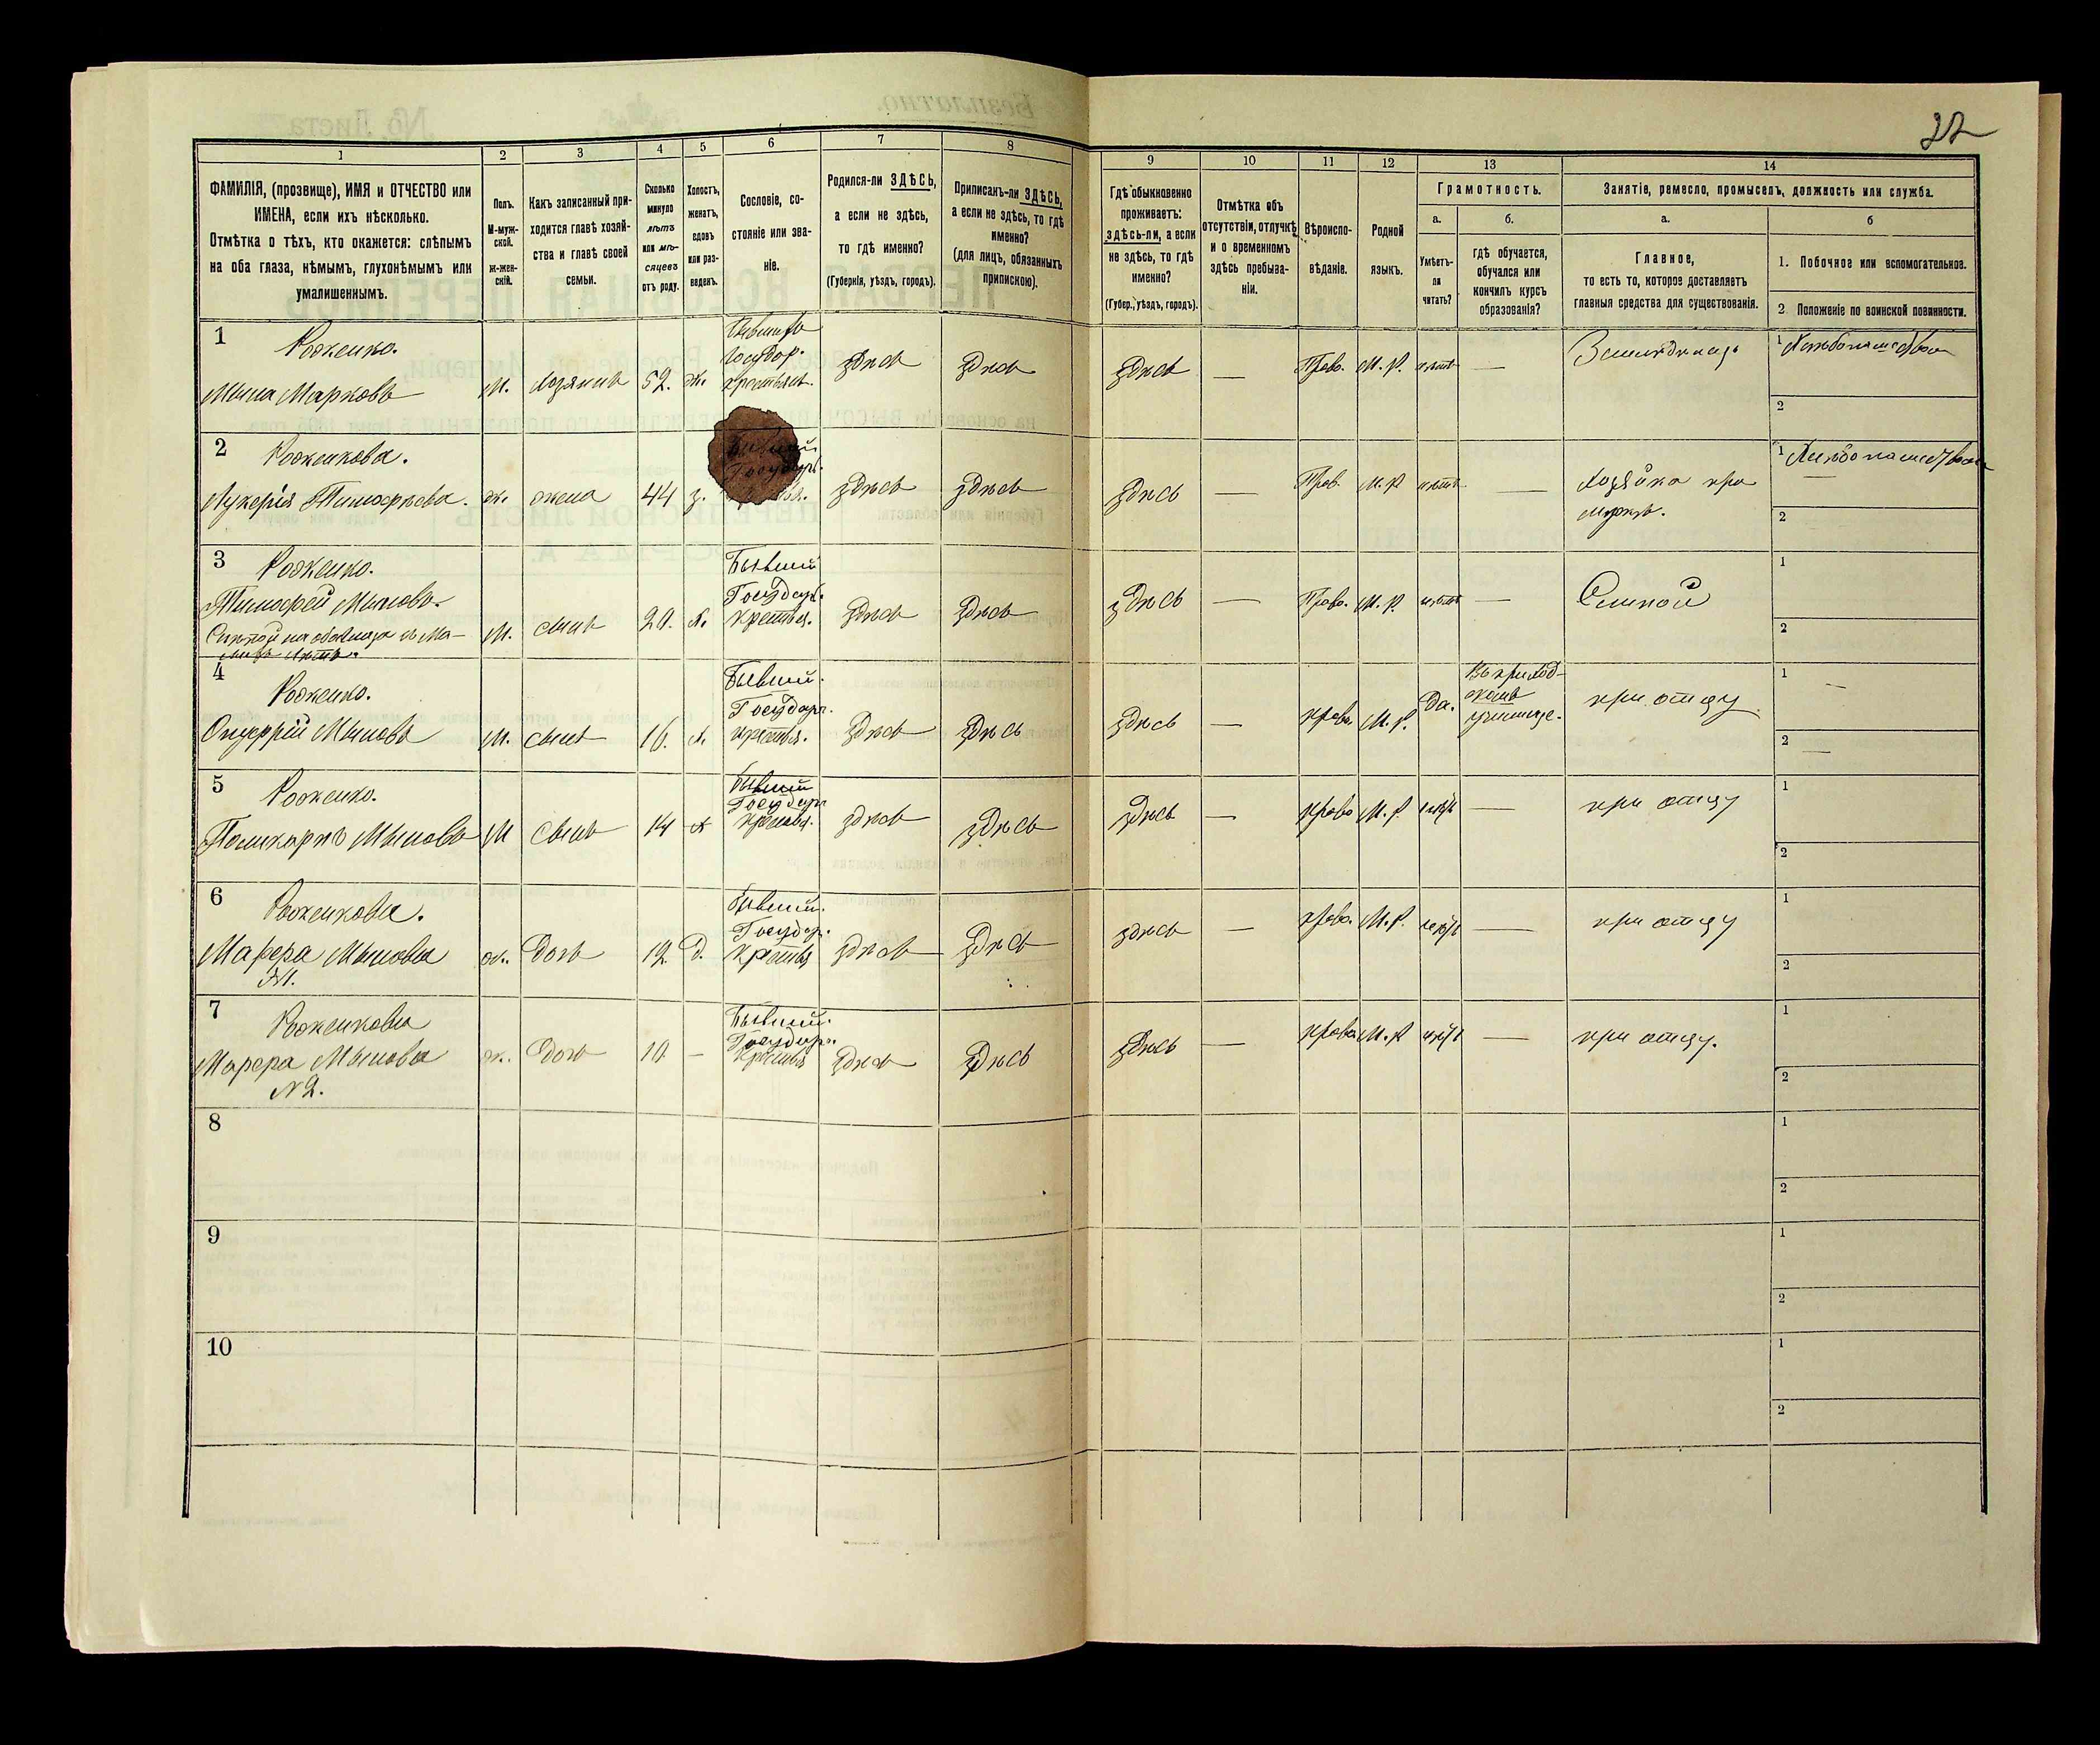 32
1
2
3
4
5
6
7
8
9
10
11
12
13
14
ФАМИЛІЯ, (прозвище), ИМЯ и ОТЧЕСТВО или
ИМЕНА, если ихъ нѣсколько.
Отмѣтка о тѣхъ, кто окажется: слѣпымъ
на оба глаза, нѣмымъ, глухонѣмымъ или
умалишеннымъ.
Полъ.
М-муж-
ской.
ж-жен-
скій.
Какъ записанный при-
ходится главѣ хозяй-
ства и главѣ своей
семьи.
Сколько
минуло
лѣтъ
или мѣ-
сяцевъ
отъ роду.
Холостъ,
женатъ,
вдовъ
или раз-
веденъ.
Сословіе, со-
стояніе или зва-
ніе.
Родился-ли ЗДѢСЬ,
а если не здѣсь,
то гдѣ именно?
(Губернія, уѣздъ, городъ).
Приписанъ-ли ЗДѢСЬ,
а если не здѣсь, то гдѣ
именно?
(для лицъ, обязанныхъ
припискою).
Гдѣ обыкновенно
проживаетъ:
здѣсь-ли, а если
не здѣсь, то гдѣ
именно?
(Губер., уѣздъ, городъ).
Отмѣтка объ
отсутствіи, отлучкѣ
и о временномъ
здѣсь пребыва-
ніи.
Вѣроиспо-
вѣданіе.
Родной
языкъ.
Грамотность.
а.
Умѣетъ-
ли
читать?
б.
гдѣ обучается,
обучался или
кончилъ курсъ
образованія?
Занятіе, ремесло, промыселъ, должность или служба.
а.
Главное,
то есть то, которое доставляетъ
главныя средства для существованія.
б
1. Побочное или вспомогательное.
2. Положеніе по воинской повинности.
1
Роженко.
Мына Марковъ
М. хозяинъ 52. ж.
Государ.
крестьян.
здѣсь здѣсь здѣсь — Право. М. Р. нѣтъ —
1
2
2
Роженкова.
Лукерія Тимофѣева.
ж. жена 44 з.
Бывший
Государ.
здѣсь здѣсь здѣсь — Прав. М. Р. нѣтъ —
Хозяйка при
мужѣ.
1
2
3
Роженко.
Тимофей Мыновъ.
М. сынъ 20. х.
Бывший
Государ.
крестья.
здѣсь здѣсь здѣсь — Право. М. Р. нѣтъ —
Слѣпой
1
2
4
Роженко.
Онуфрій Мыновъ
М. сынъ 16. х.
Бывший.
Государ.
крестья.
здѣсь здѣсь здѣсь — право М. Р. Да.
Въ приход-
скомъ
училище.
при отцу
1 —
2 —
5
Роженко.
Поликарпъ Мыновъ
М сынъ 14 х
Бывший
Государ.
крестья.
здѣсь здѣсь здѣсь — право М. Р. нѣтъ —
при отцу
1
2
6
Роженкова.
Марфа Мынова
№1.
ж. дочь 12. д.
Бывший.
Государ.
Крестья
здѣсь здѣсь здѣсь — право. М. Р. нѣтъ —
при отцу
1
2
7
Роженкова
Марфа Мынова
№2.
ж. дочь 10 —
Бывший.
Государ.
Крестья
здѣсь здѣсь здѣсь — право М. Р нѣтъ —
при отцу.
1
2
8
1
2
9
1
2
10
1
2